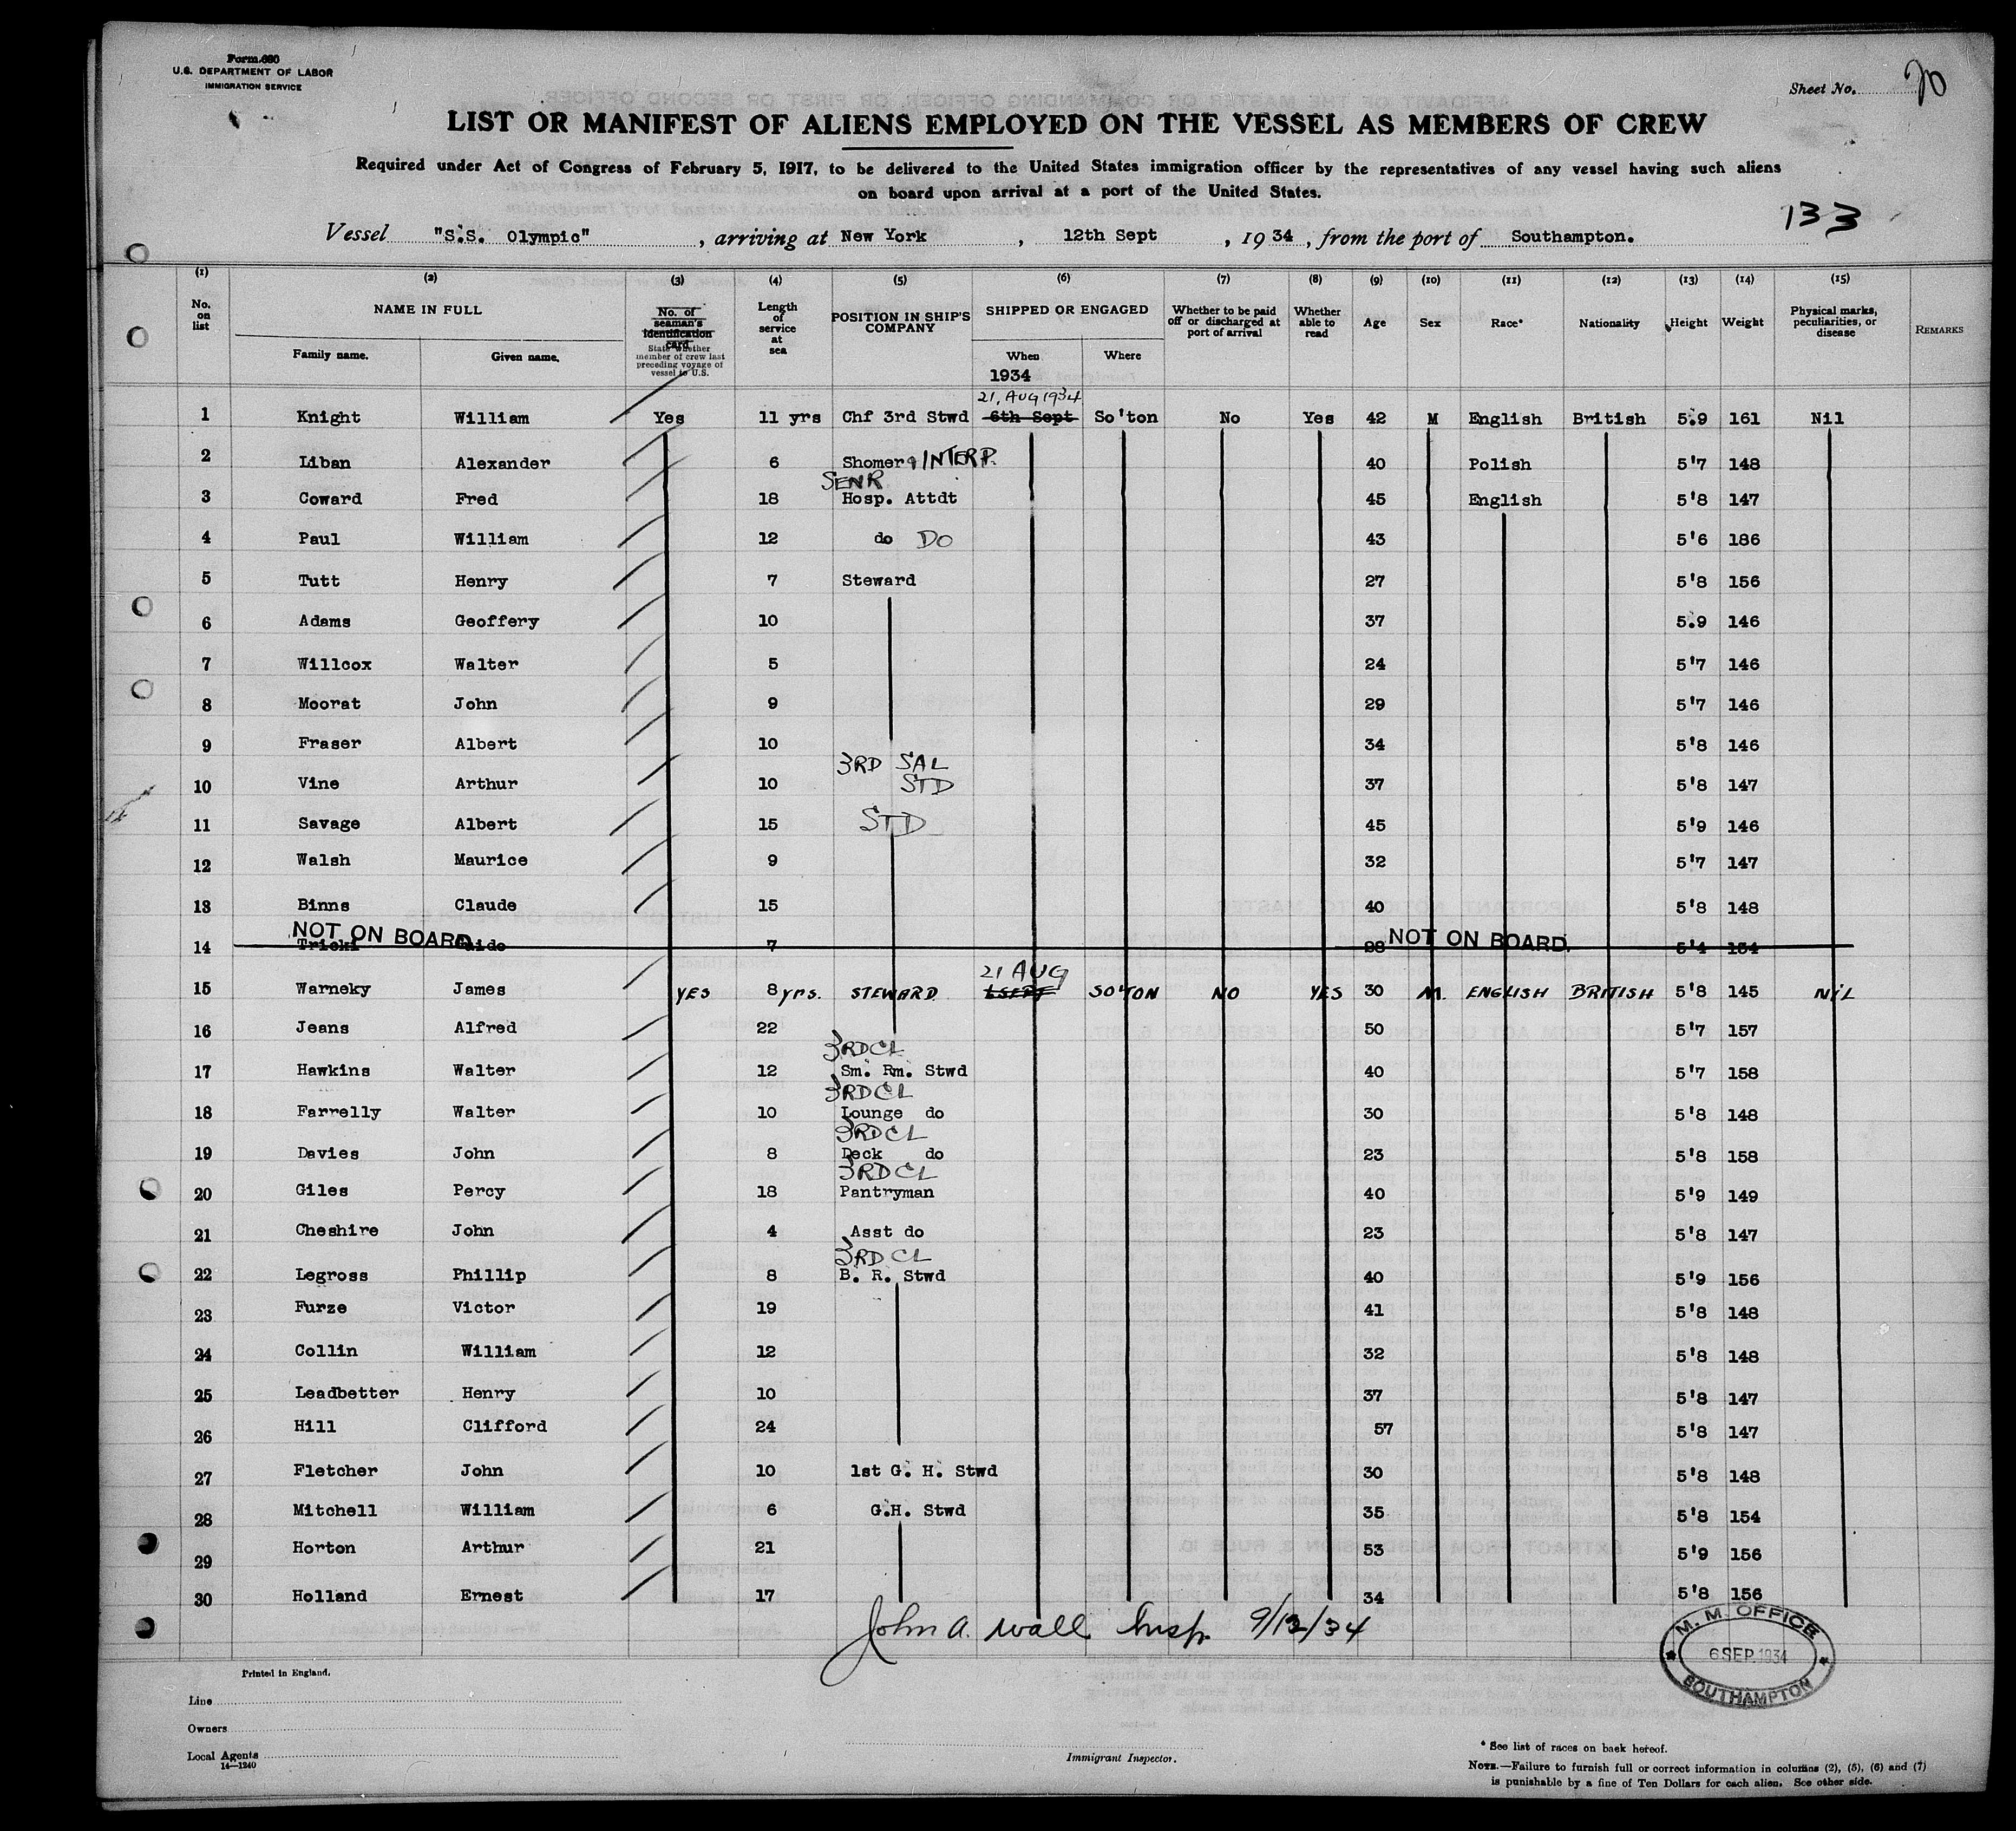 Form 680
U.S. DEPARTMENT OF LABOR
IMMIGRATION SERVICE
Sheet No. 20
LIST OR MANIFEST OF ALIENS EMPLOYED ON THE VESSEL AS MEMBERS OF CREW
Required under Act of Congress of February 5, 1917, to be delivered to the United States immigration officer by the representatives of any vessel having such aliens
on board upon arrival at a port of the United States.
133
Vessel "S.S. Olympic", arriving at New York, 12th Sept, 1934, from the port of Southampton.
(1) (2) (3) (4) (5) (6) (7) (8) (9) (10) (11) (12) (13) (14) (15)
No. on list NAME IN FULL Family name. Given name. No. of seaman's identification card State whether member of crew last preceding voyage of vessel to U.S. Length of service at sea POSITION IN SHIP'S COMPANY SHIPPED OR ENGAGED When Where Whether to be paid off or discharged at port of arrival Whether able to read Age Sex Race* Nationality Height Weight Physical marks, peculiarities, or disease REMARKS
1934
21, AUG 1934
1 Knight William Yes 11 yrs Chf 3rd Stwd 6th Sept So'ton No Yes 42 M English British 5.9 161 Nil
2 Liban Alexander 6 Shomer & INTERP. 40 Polish 5'7 148
SENR
3 Coward Fred 18 Hosp. Attdt 45 English 5'8 147
4 Paul William 12 do DO 43 5'6 186
5 Tutt Henry 7 Steward 27 5'8 156
6 Adams Geoffery 10 37 5.9 146
7 Willcox Walter 5 24 5'7 146
8 Moorat John 9 29 5'7 146
9 Fraser Albert 10 34 5'8 146
3RD SAL
10 Vine Arthur 10 STD 37 5'8 147
11 Savage Albert 15 STD 45 5'9 146
12 Walsh Maurice 9 32 5'7 147
13 Binns Claude 15 40 5'8 148
NOT ON BOARD NOT ON BOARD.
14 Tricki Guido 7 28 5'4 134
21 AUG
15 Warneky James YES 8 yrs. STEWARD 6 SEPT SO'TON NO YES 30 M. ENGLISH BRITISH 5'8 145 NIL
16 Jeans Alfred 22 50 5'7 157
3RD CL
17 Hawkins Walter 12 Sm. Rm. Stwd 40 5'7 158
3RD CL
18 Farrelly Walter 10 Lounge do 30 5'8 148
3RD CL
19 Davies John 8 Deck do 23 5'8 158
3RD CL
20 Giles Percy 18 Pantryman 40 5'9 149
21 Cheshire John 4 Asst do 23 5'8 147
3RD CL
22 Legross Phillip 8 B. R. Stwd 40 5'9 156
23 Furze Victor 19 41 5'8 148
24 Collin William 12 32 5'8 148
25 Leadbetter Henry 10 37 5'8 147
26 Hill Clifford 24 57 5'8 147
27 Fletcher John 10 1st G. H. Stwd 30 5'8 148
28 Mitchell William 6 G.H. Stwd 35 5'8 154
29 Horton Arthur 21 53 5'9 156
30 Holland Ernest 17 34 5'8 156
John A. Wall Insp. 9/12/34
M. M. OFFICE
6 SEP. 1934
SOUTHAMPTON
Printed in England.
Line
Owners
Local Agents
14—1240
Immigrant Inspector.
* See list of races on back hereof.
NOTE.—Failure to furnish full or correct information in columns (2), (5), (6) and (7)
is punishable by a fine of Ten Dollars for each alien. See other side.